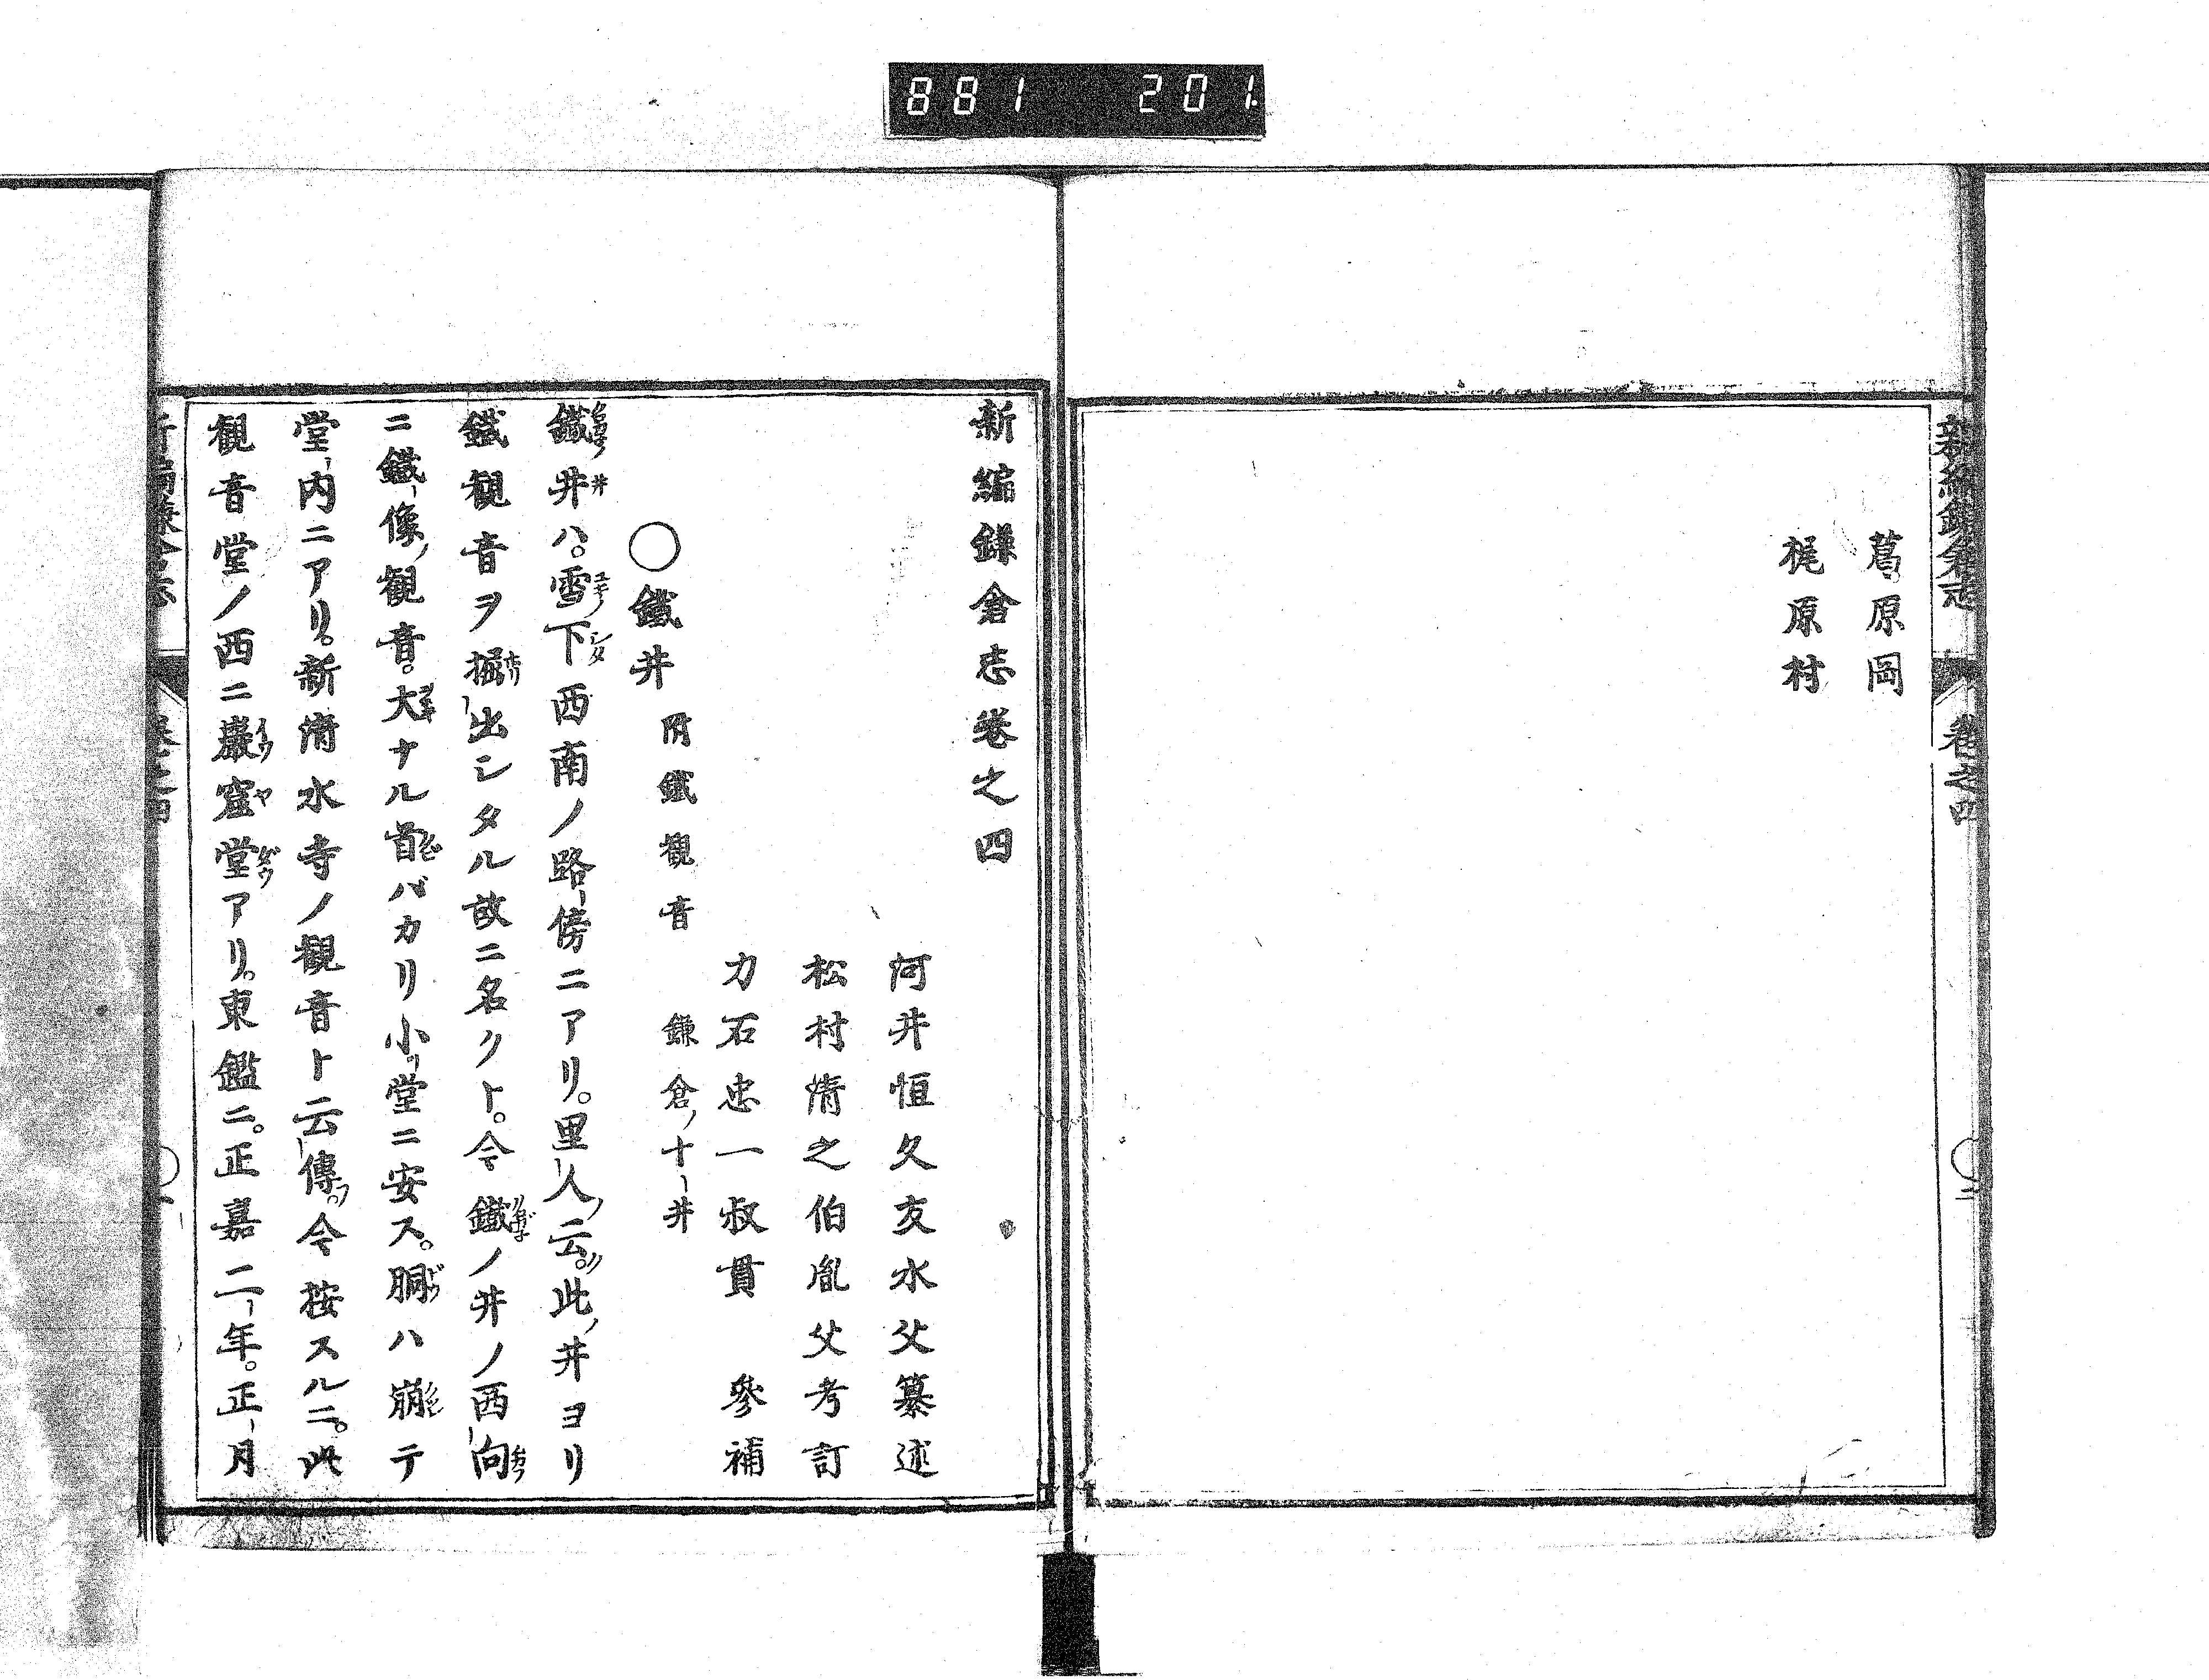 881 201
新編鎌倉志 卷之四 二
葛原岡
梶原村
新編鎌倉志卷之四
河井恒久友水父纂述
松村清之伯胤父考訂
力石忠一叔貫 參補
○鐵井 附鐵觀音 鎌倉ノ十井
鐵井ハ。雪下西南ノ路傍ニアリ。里人ノ云ク。此ノ井ヨリ
鐵觀音ヲ掘出シタル故ニ名クト。今鐵ノ井ノ西向
ニ鐵像ノ觀音。大ナル首バカリ小堂ニ安ス。胴ハ崩テ
堂内ニアリ。新清水寺ノ觀音ト云傳フ。今按スルニ。此
觀音堂ノ西ニ巖窟堂アリ。東鑑ニ。正嘉二年。正月